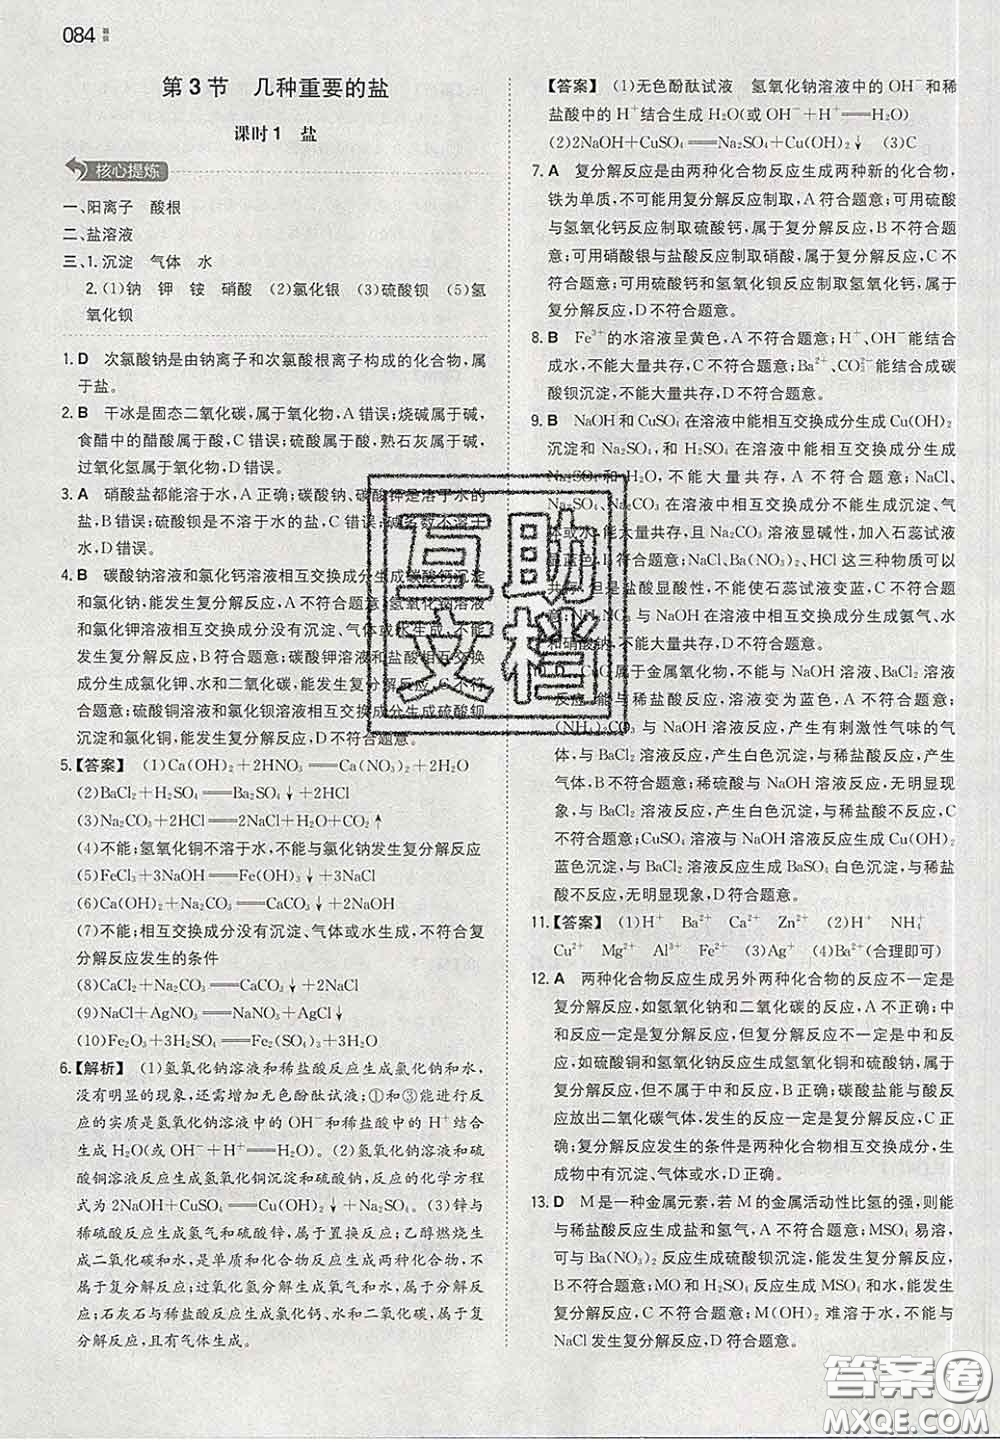 084
第 3 节　几种重要的盐
课时 1　盐
核心提炼
一、阳离子　酸根
二、盐溶液
三、1.沉淀　气体　水
2.(1)钠　钾　铵　硝酸　(2)氯化银　(3)硫酸钡　(5)氢
氧化钡
1. D　次氯酸钠是由钠离子和次氯酸根离子构成的化合物,属
于盐。
2. B　干冰是固态二氧化碳,属于氧化物,A 错误;烧碱属于碱,
食醋中的醋酸属于酸,C 错误;纯碱属于盐,熟石灰属于碱,
过氧化氢属于氧化物,D 错误。
3. A　硝酸盐都能溶于水,A 正确;碳酸钠、碳酸钾是溶于水的
盐,B 错误;硫酸钡是不溶于水的盐,C 错误;碱多数不溶于
水,D 错误。
4. B　碳酸钠溶液和氯化钙溶液相互交换成分生成碳酸钙沉淀
和氯化钠,能发生复分解反应,A 不符合题意;氢氧化钠溶液
和氯化钾溶液相互交换成分没有沉淀、气体或水生成,不能
发生复分解反应,B 符合题意;碳酸钾溶液和盐酸相互交换
成分生成氯化钾、水和二氧化碳,能发生复分解反应,C 不符
合题意;硫酸铜溶液和氯化钡溶液相互交换成分生成硫酸钡
沉淀和氯化铜,能发生复分解反应,D 不符合题意。
5.【答案】　(1)Ca(OH)₂+2HNO₃══Ca(NO₃)₂+2H₂O
(2)BaCl₂+H₂SO₄══BaSO₄↓+2HCl
(3)Na₂CO₃+2HCl══2NaCl+H₂O+CO₂↑
(4)不能;氢氧化铜不溶于水,不能与氯化钠发生复分解反应
(5)FeCl₃+3NaOH══Fe(OH)₃↓+3NaCl
(6)Ca(OH)₂+Na₂CO₃══CaCO₃↓+2NaOH
(7)不能;相互交换成分没有沉淀、气体或水生成,不符合复
分解反应发生的条件
(8)CaCl₂+Na₂CO₃══CaCO₃↓+2NaCl
(9)NaCl+AgNO₃══NaNO₃+AgCl↓
(10)Fe₂O₃+3H₂SO₄══Fe₂(SO₄)₃+3H₂O
6.【解析】　(1)氢氧化钠溶液和稀盐酸反应生成氯化钠和水,
没有明显的现象,还需增加无色酚酞试液;①和③能进行反
应的实质是氢氧化钠溶液中的 OH⁻ 和稀盐酸中的 H⁺ 结合
生成 H₂O(或 OH⁻+H⁺══H₂O)。(2)氢氧化钠溶液和硫
酸铜溶液反应生成氢氧化铜沉淀和硫酸钠,反应的化学方程
式为 2NaOH+CuSO₄══Cu(OH)₂↓+Na₂SO₄。(3)锌与
稀硫酸反应生成氢气和硫酸锌,属于置换反应;乙醇燃烧生
成二氧化碳和水,是单质和化合物反应生成两种化合物,不
属于复分解反应;过氧化氢分解生成水和氧气,属于分解反
应;石灰石与稀盐酸反应生成氯化钙、水和二氧化碳,属于复
分解反应,且有气体生成。
【答案】　(1)无色酚酞试液　氢氧化钠溶液中的 OH⁻ 和稀
盐酸中的 H⁺ 结合生成 H₂O(或 OH⁻+H⁺══H₂O)
(2)2NaOH+CuSO₄══Na₂SO₄+Cu(OH)₂↓　(3)C
7. A　复分解反应是由两种化合物反应生成两种新的化合物,
铁为单质,不可能用复分解反应制取,A 符合题意;可用硫酸
与氢氧化钙反应制取硫酸钙,属于复分解反应,B 不符合题
意;可用硝酸银与盐酸反应制取硝酸,属于复分解反应,C 不
符合题意;可用硫酸钙和氢氧化钡反应制取氢氧化钙,属于
复分解反应,D 不符合题意。
8. B　Fe³⁺的水溶液呈黄色,A 不符合题意;H⁺、OH⁻能结
合成水,不能大量共存,C 不符合题意;Ba²⁺、CO₃²⁻能结合成碳
酸钡沉淀,不能大量共存,D 不符合题意。
9. B　NaOH 和 CuSO₄ 在溶液中能相互交换成分生成 Cu(OH)₂
沉淀和 Na₂SO₄,和 H₂SO₄ 在溶液中能相互交换成分生成
Na₂SO₄ 和 H₂O,不能大量共存,A 不符合题意;NaCl、
Na₂SO₄、Na₂CO₃ 在溶液中相互交换成分不能生成沉淀、气
体或水,能大量共存,且 Na₂CO₃ 溶液显碱性,加入石蕊试液
显蓝色,B 符合题意;NaCl、Ba(NO₃)₂、HCl 这三种物质可以
共存,但是盐酸显酸性,不能使石蕊试液变蓝,C 不符合题
意;NH₄NO₃ 与 NaOH 在溶液中相互交换成分生成氨气、水
和硝酸钠,不能大量共存,D 不符合题意。
属于金属氧化物,不能与 NaOH 溶液、BaCl₂ 溶液
反应,能与稀盐酸反应,溶液变为蓝色,A 不符合题意;
(NH₄)₂CO₃ 与 NaOH 溶液反应,产生有刺激性气味的气
体,与 BaCl₂ 溶液反应,产生白色沉淀,与稀盐酸反应,产生
气体,B 不符合题意;稀硫酸与 NaOH 溶液反应,无明显现
象,与 BaCl₂ 溶液反应,产生白色沉淀,与稀盐酸不反应,C
不符合题意;CuSO₄ 溶液与 NaOH 溶液反应生成 Cu(OH)₂
蓝色沉淀,与 BaCl₂ 溶液反应生成 BaSO₄ 白色沉淀,与稀盐
酸不反应,无明显现象,D 符合题意。
11.【答案】　(1)H⁺　Ba²⁺　Ca²⁺　Zn²⁺　(2)H⁺　NH₄⁺
Cu²⁺　Mg²⁺　Al³⁺　Fe²⁺　(3)Ag⁺　(4)Ba²⁺(合理即可)
12. A　两种化合物反应生成另外两种化合物的反应不一定是
复分解反应,如氢氧化钠和二氧化碳的反应,A 不正确;中
和反应一定是复分解反应,但复分解反应不一定是中和反
应,如硫酸铜和氢氧化钠反应生成氢氧化铜和硫酸钠,属于
复分解反应,但不属于中和反应,B 正确;碳酸盐能与酸反
应放出二氧化碳气体,发生的反应一定是复分解反应,C 正
确;复分解反应发生的条件是两种化合物相互交换成分,生
成物中有沉淀、气体或水,D 正确。
13. D　M 是一种金属元素,若 M 的金属活动性比氢的强,则能
与稀盐酸反应生成盐和氢气,A 不符合题意;MSO₄ 易溶,
可与 Ba(NO₃)₂ 反应生成硫酸钡沉淀,能发生复分解反应,
B 不符合题意;MO 和 H₂SO₄ 反应生成 MSO₄ 和水,能发生
复分解反应,C 不符合题意;M(OH)₂ 难溶于水,不能与
NaCl 发生复分解反应,D 符合题意。
互助
文档
答案圈
MXQE.COM